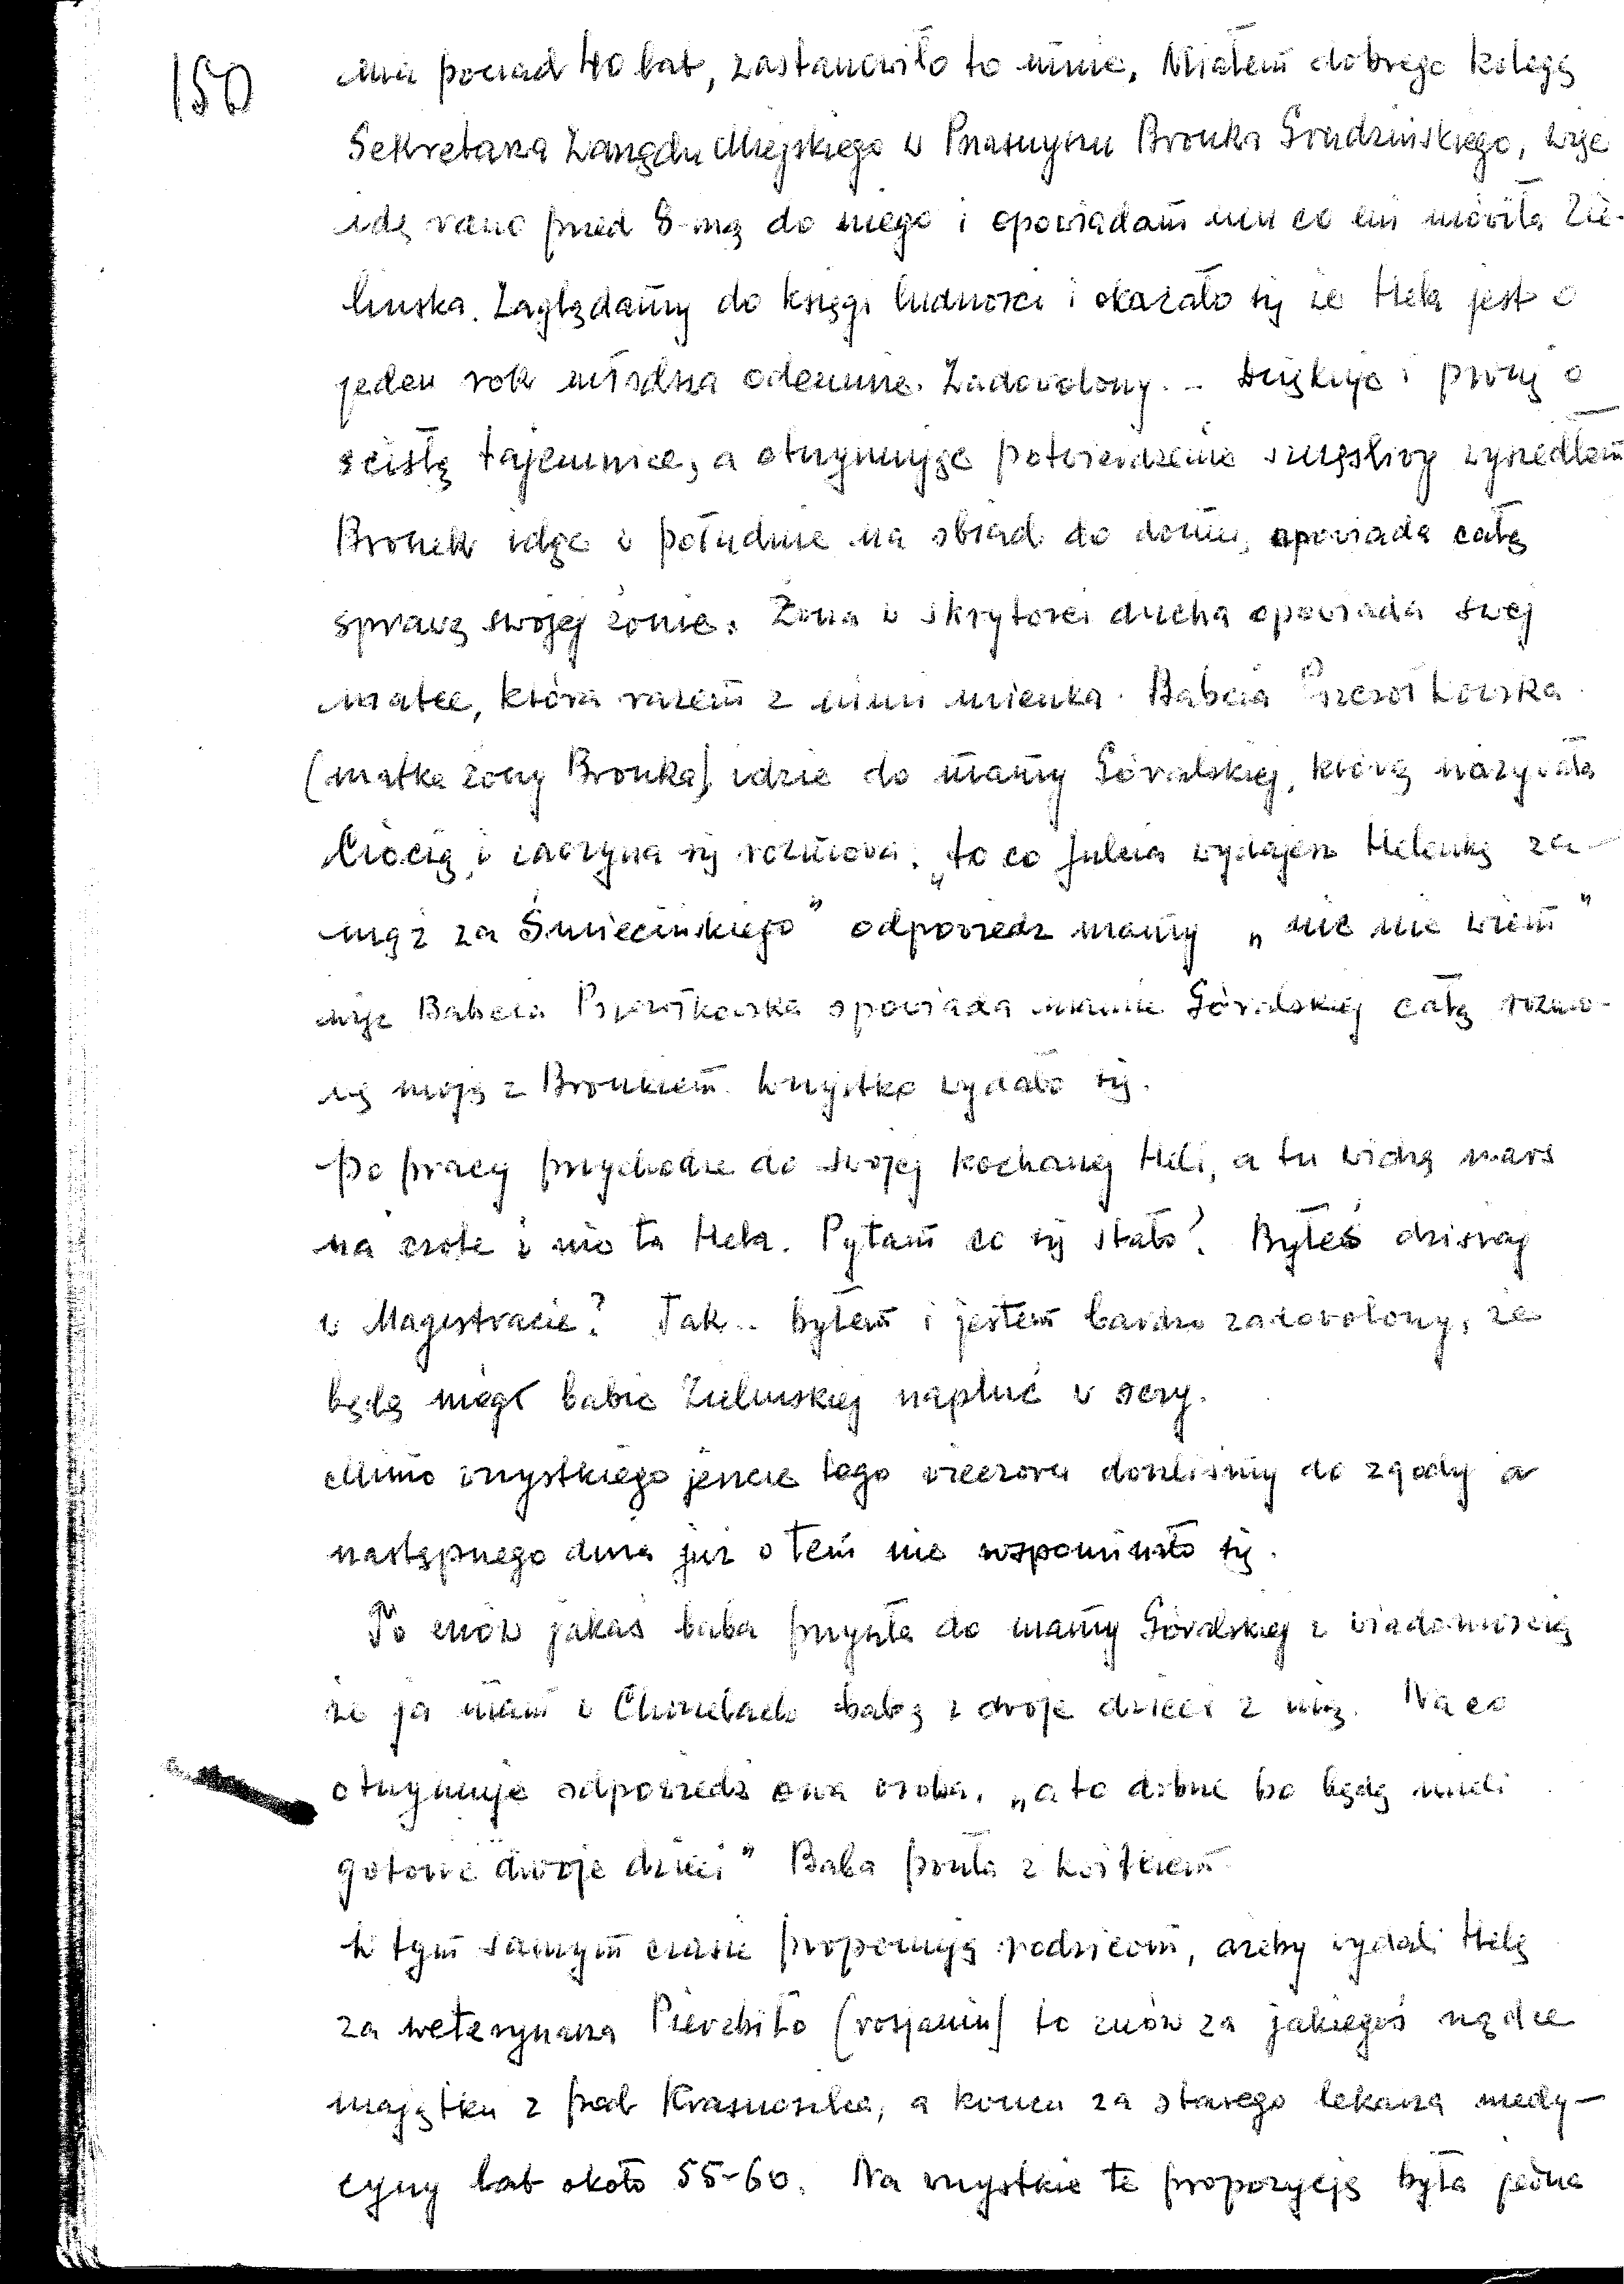 150
ma ponad 40 lat, zastanowiło to mnie. Miałem dobrego kolegę
Sekretarza Zarządu Miejskiego w Przasnyszu Bronka Grudzińskiego, więc
idę rano przed 8-mą do niego i opowiadam mu co mi mówiła Zie-
lińska. Zaglądamy do księgi ludności i okazało się że Hela jest o
jeden rok młodsza odemnie. Zadowolony... Dziękuję i proszę o
ścisłą tajemnice, a otrzymując potwierdzenie szczęśliwy wyszedłem
Bronek idąc w południe na obiad do domu, opowiada całą
sprawę swojej żonie. Żona w skrytości ducha opowiada swej
matce, która razem z nimi mieszka. Babcia
(matka żony Bronka) idzie do mamy Góralskiej, którą nazywała
Ciocią, i zaczyna się rozmowa. „to co Julcia wydajesz Helenkę za-
mąż za Śmiecińskiego" odpowiedz mamy „nic nie wiem"
więc Babcia opowiada mamie Góralskiej całą rozmo-
wę moją z Bronkiem. Wszystko wydało się.
Po pracy przychodze do swojej kochanej Heli, a tu widzę mars
na czole i nie ta Hela. Pytam co się stało? Byłeś dzisiaj
w Magistracie? Tak.. byłem i jestem bardzo zadowolony, że
będę mógł babie Zielinskiej napluć w oczy.
Mimo wszystkiego jeszcze tego wieczora doszliśmy do zgody a
następnego dnia już o tem nie wspominało się.
To znów jakaś baba przyszła do mamy Góralskiej z wiadomością
że ja mam w Chorzelach babę i dwoje dzieci z nią. Na co
otrzymuje odpowiedź owa osoba, „a to dobrze bo będą mieli
gotowe dwoje dzieci" Baba poszła z kwitkiem
W tym samym czasie proponują rodzicom, ażeby wydali Helę
za weterynarza (rosjanin) to znów za jakiegoś rządce
majątku z pod Krasnosielca, a koncu za starego lekarza medy-
cyny lat około 55-60. Na wszystkie te propozycję była jedna